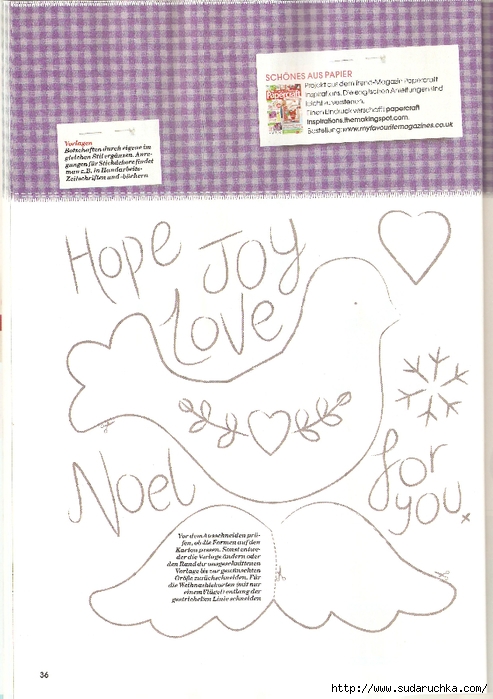 SCHÖNES AUS PAPIER
Projekt aus dem Trend-Magazin Papercraft
Inspirations. Die englischen Anleitungen sind
leicht zu verstehen.
Einen Eindruck verschafft: papercraft
inspirations.themakingspot.com.
Bestellung: www.myfavouritemagazines.co.uk
Papercraft
Vorlagen
Botschaften durch eigene im
gleichen Stil ergänzen. Anre-
gungen für Stickdekore findet
man z.B. in Handarbeits-
Zeitschriften und -büchern
Hope Joy
Love
Noel
for
you x
Vor dem Ausschneiden prü-
fen, ob die Formen auf den
Karton passen. Sonst entwe-
der die Vorlage ändern oder
den Rand der ausgeschnittenen
Vorlage bis zur gewünschten
Größe zurückschneiden. Für
die Weihnachtskarten (mit nur
einem Flügel) entlang der
gestrichelten Linie schneiden
36
http://www.sudaruchka.com/